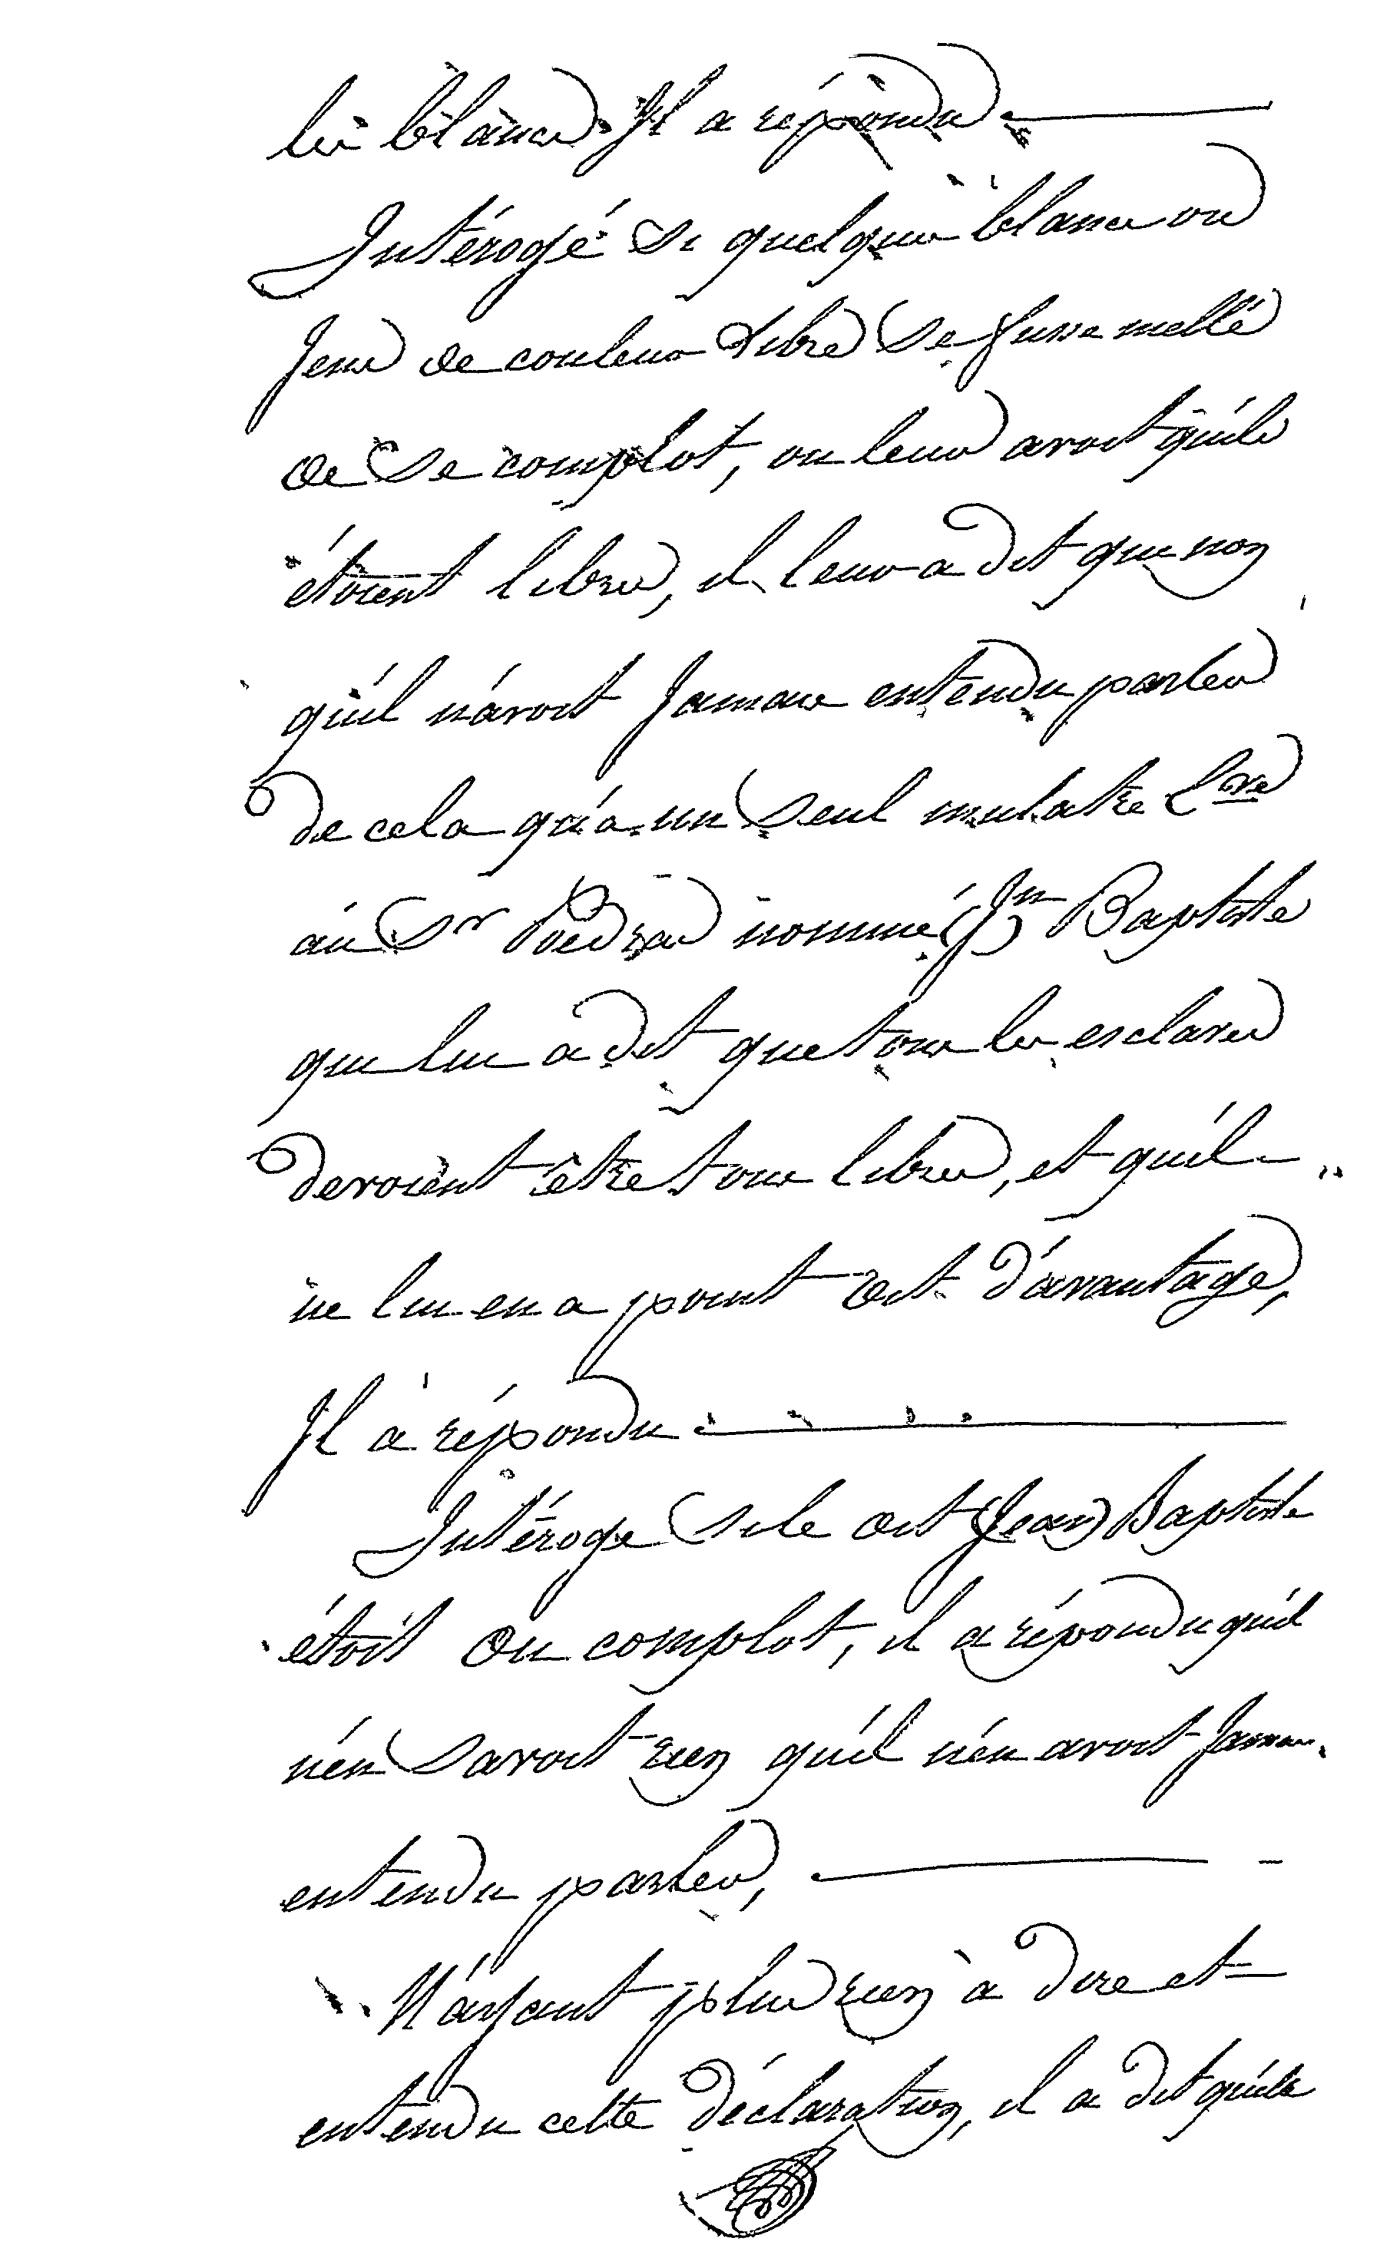 les blancs. Il a répondu
Intérogé si quelques blancs ou
Jens de couleur Libre se fusse mellé
de se complot, ou leurs avoit qu'ils
étoient libres, il leur a dit que non
qu'il n'avoit Jamais entendu parler
de cela qu'a un seul mulatre L.re
au Sr nommé Jn Baptiste
qui lui a dit que tous les esclaves
devoient être tous libres, et qu'il
ne lui en a point dit d'avantage,
Il a répondu
Intéroge si le dit Jean Baptiste
étoit du complot, il a répondu qu'il
n'en savoit rien qu'il n'en avoit Jamais
entendu parler,
N'ayant plus rien à dire et
entendu cette déclaration, il a dit qu'ils